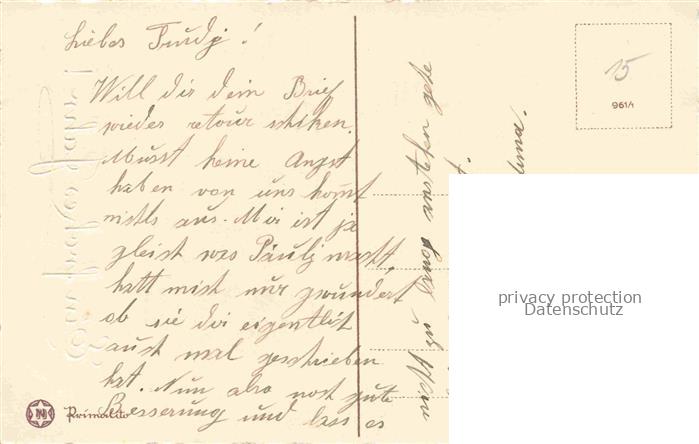 Liebes Trudj!
Will dir dein Brief
wieder retour schiken.
Musst keine Angst
haben von uns komt
nichts aus. Mir ist ja
gleich was Paulj macht,
hatt mich nur gwundert
ob sie dir eigentlich
auch mal geschrieben
hat. Nun also noch gute
Besserung und lass es
nicht zu lang anstehen
15
9614
Primalito
privacy protection
Datenschutz